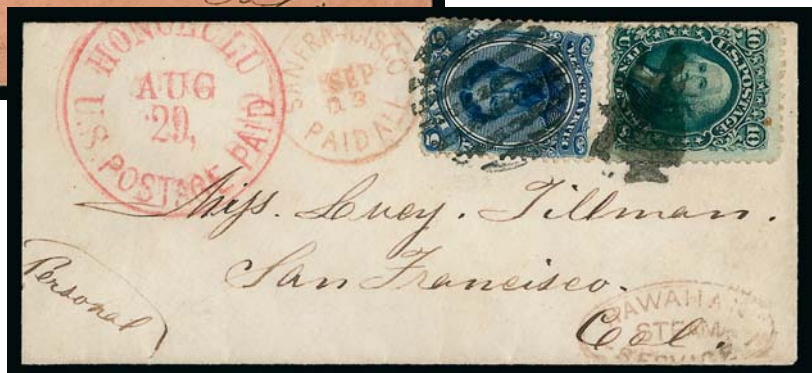 HONOLULU
AUG
29,
U.S. POSTAGE PAID
SAN FRANCISCO
SEP
PAID ALL
U.S. POSTAGE
10 10
Miss. Lucy. Tillman.
San Francisco.
Cal.
Personal
HAWAIIAN
STEAM
SERVICE